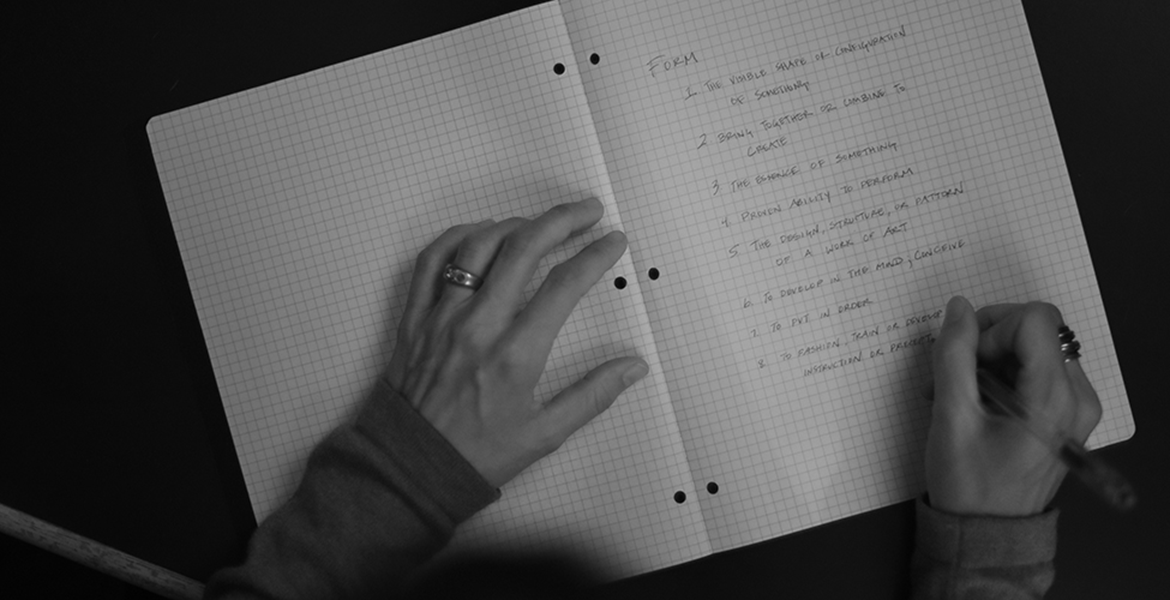 FORM
1. THE VISIBLE SHAPE OR CONFIGURATION
OF SOMETHING
2 BRING TOGETHER OR COMBINE TO
CREATE
3 THE ESSENCE OF SOMETHING
4. PROVEN ABILITY TO PERFORM
5 THE DESIGN, STRUCTURE, OR PATTERN
OF A WORK OF ART
6. TO DEVELOP IN THE MIND; CONCEIVE
7. TO PUT IN ORDER
8. TO FASHION, TRAIN OR DEVELOP
INSTRUCTION OR